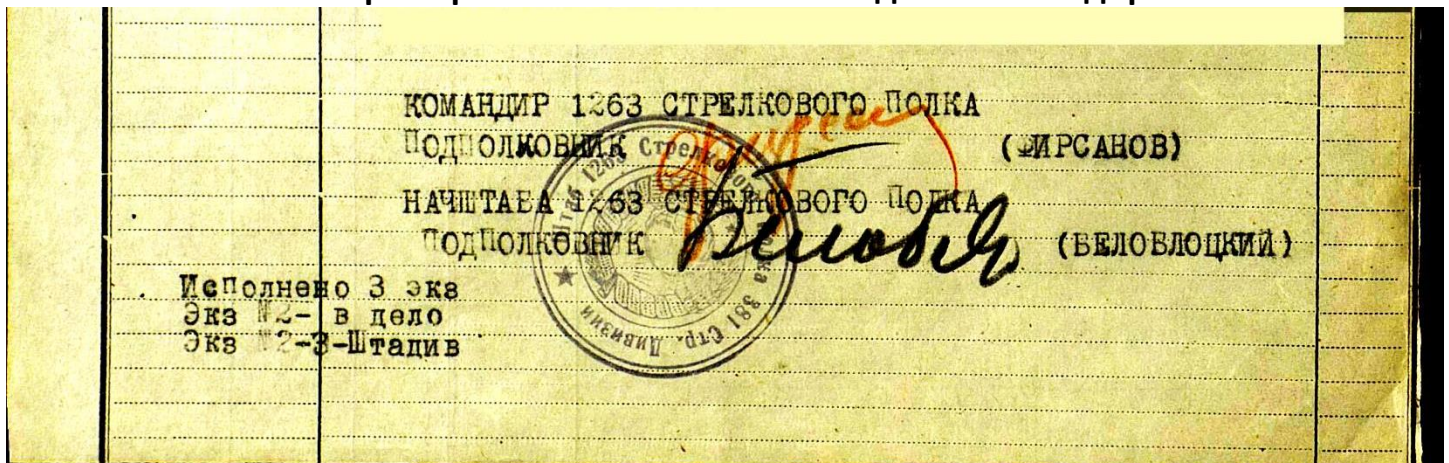 КОМАНДИР 1263 СТРЕЛКОВОГО ПОЛКА
ПОДПОЛКОВНИК (ФИРСАНОВ)
НАЧШТАБА 1263 СТРЕЛКОВОГО ПОЛКА
ПОДПОЛКОВНИК (БЕЛОБЛОЦКИЙ)
Исполнено 3 экз
Экз №2- в дело
Экз №2-3-Штадив
Штаб 1263 Стрелкового полка 381 Стр. Дивизии